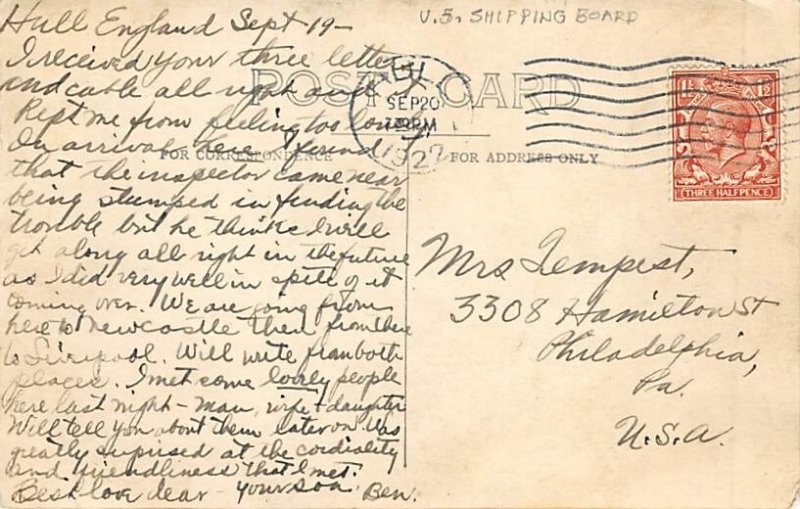 U.S. SHIPPING BOARD
Hull England Sept 19-
I received your three letters
and cable all right and it
kept me from feeling too lonely,
On arrival here I found
that the inspector came near
being stumped in finding the
trouble but he thinks I will
get along all right in the future
as I did very well in spite of it
coming over. We are going from
here to Newcastle then from there
to Liverpool. Will write from both
places. I met some lovely people
here last night - man, wife + daughter
Will tell you about them later on Was
greatly surprised at the cordiality
and friendliness that I met.
Best love dear - your son. Ben.
POST CARD
FOR CORRESPONDENCE
FOR ADDRESS ONLY
HULL
SEP 20
PM
1922
1½ 1½
THREE HALFPENCE
Mrs Tempest,
3308 Hamilton St
Philadelphia,
Pa.
U.S.A.